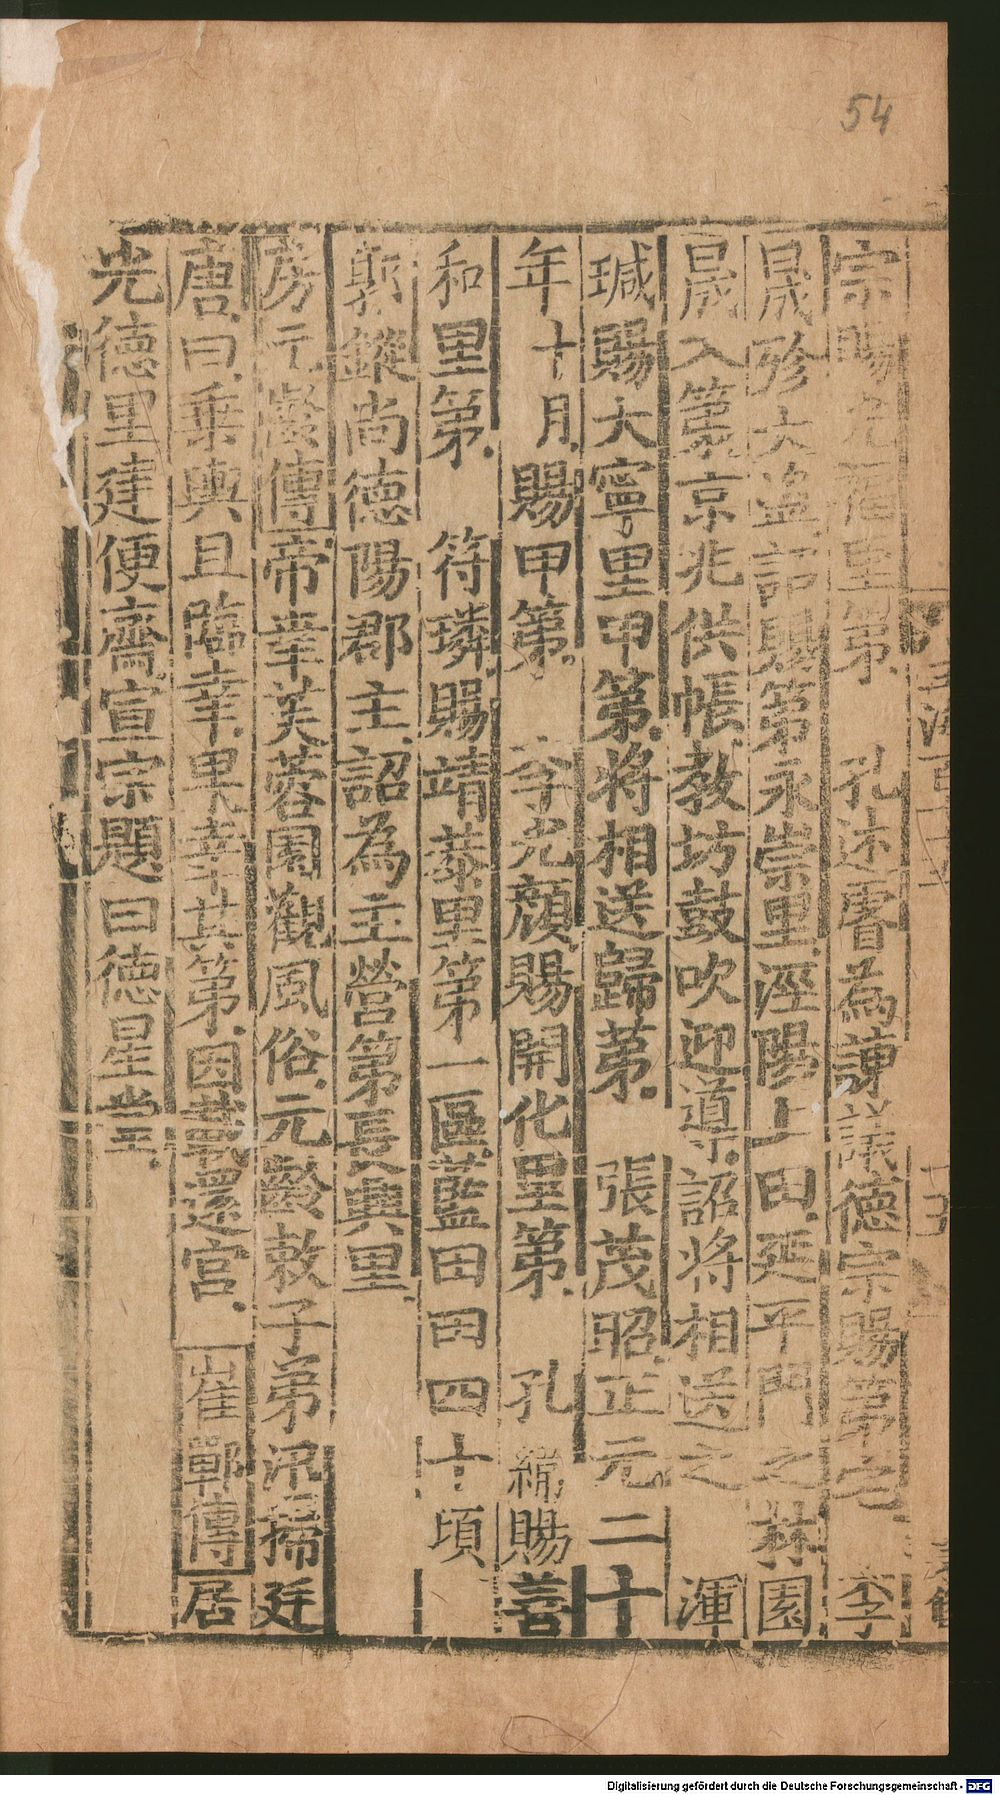 54
宗賜光雇里第 孔述睿為諫議德宗賜第宅 李
晟殄大盗詔賜第永崇里涇陽上田延平門之林園
晟入第京兆供帳教坊鼓吹迎導詔將相送之 渾
瑊賜大寧里甲第將相送歸第 張茂昭正元二十
年十月賜甲第 李光顔賜開化里第 孔緺賜善
和里第 符璘賜靖㳟里第一區藍田田四十頃
鄭鏦尚德陽郡主詔為主營第長興里
房元齡傳帝幸芙蓉園觀風俗元齡敕子弟汛掃廷
唐曰乗輿且臨幸果幸其第因載還宫 崔鄲傳居
光德里建便齋宣宗題曰德星堂
Digitalisierung gefördert durch die Deutsche Forschungsgemeinschaft - DFG